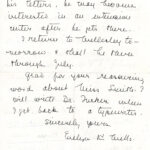 his letters, he may become
interested in an intensive
center after he gets there.
I return to Wellesley to-
morrow & shall be there
through July.
Glad for your reassuring
word about Miss Smith. I
will write Dr. when
I get back to a typewriter
Sincerely yours,
Evelyn K.